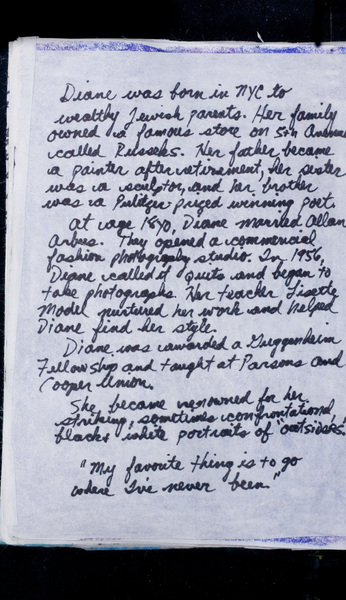 Diane was born in NYC to
wealthy Jewish parents. Her family
owned a famous store on 5th Avenue
called Russeks. Her father became
a painter after retirement, her sister
was a sculptor, and her brother
was a Pulitzer prized winning poet.
At age 18, Diane married Allan
Arbus. They opened a commercial
fashion photography studio. In 1956,
Diane called it quits and began to
take photographs. Her teacher Lisette
Model nurtured her work and helped
Diane find her style.
Diane was awarded a Guggenheim
Fellowship and taught at Parsons and
Cooper Union.
She became renowned for her
striking, sometimes confrontational,
black + white portraits of "outsiders."
"My favorite thing is to go
where I've never been."